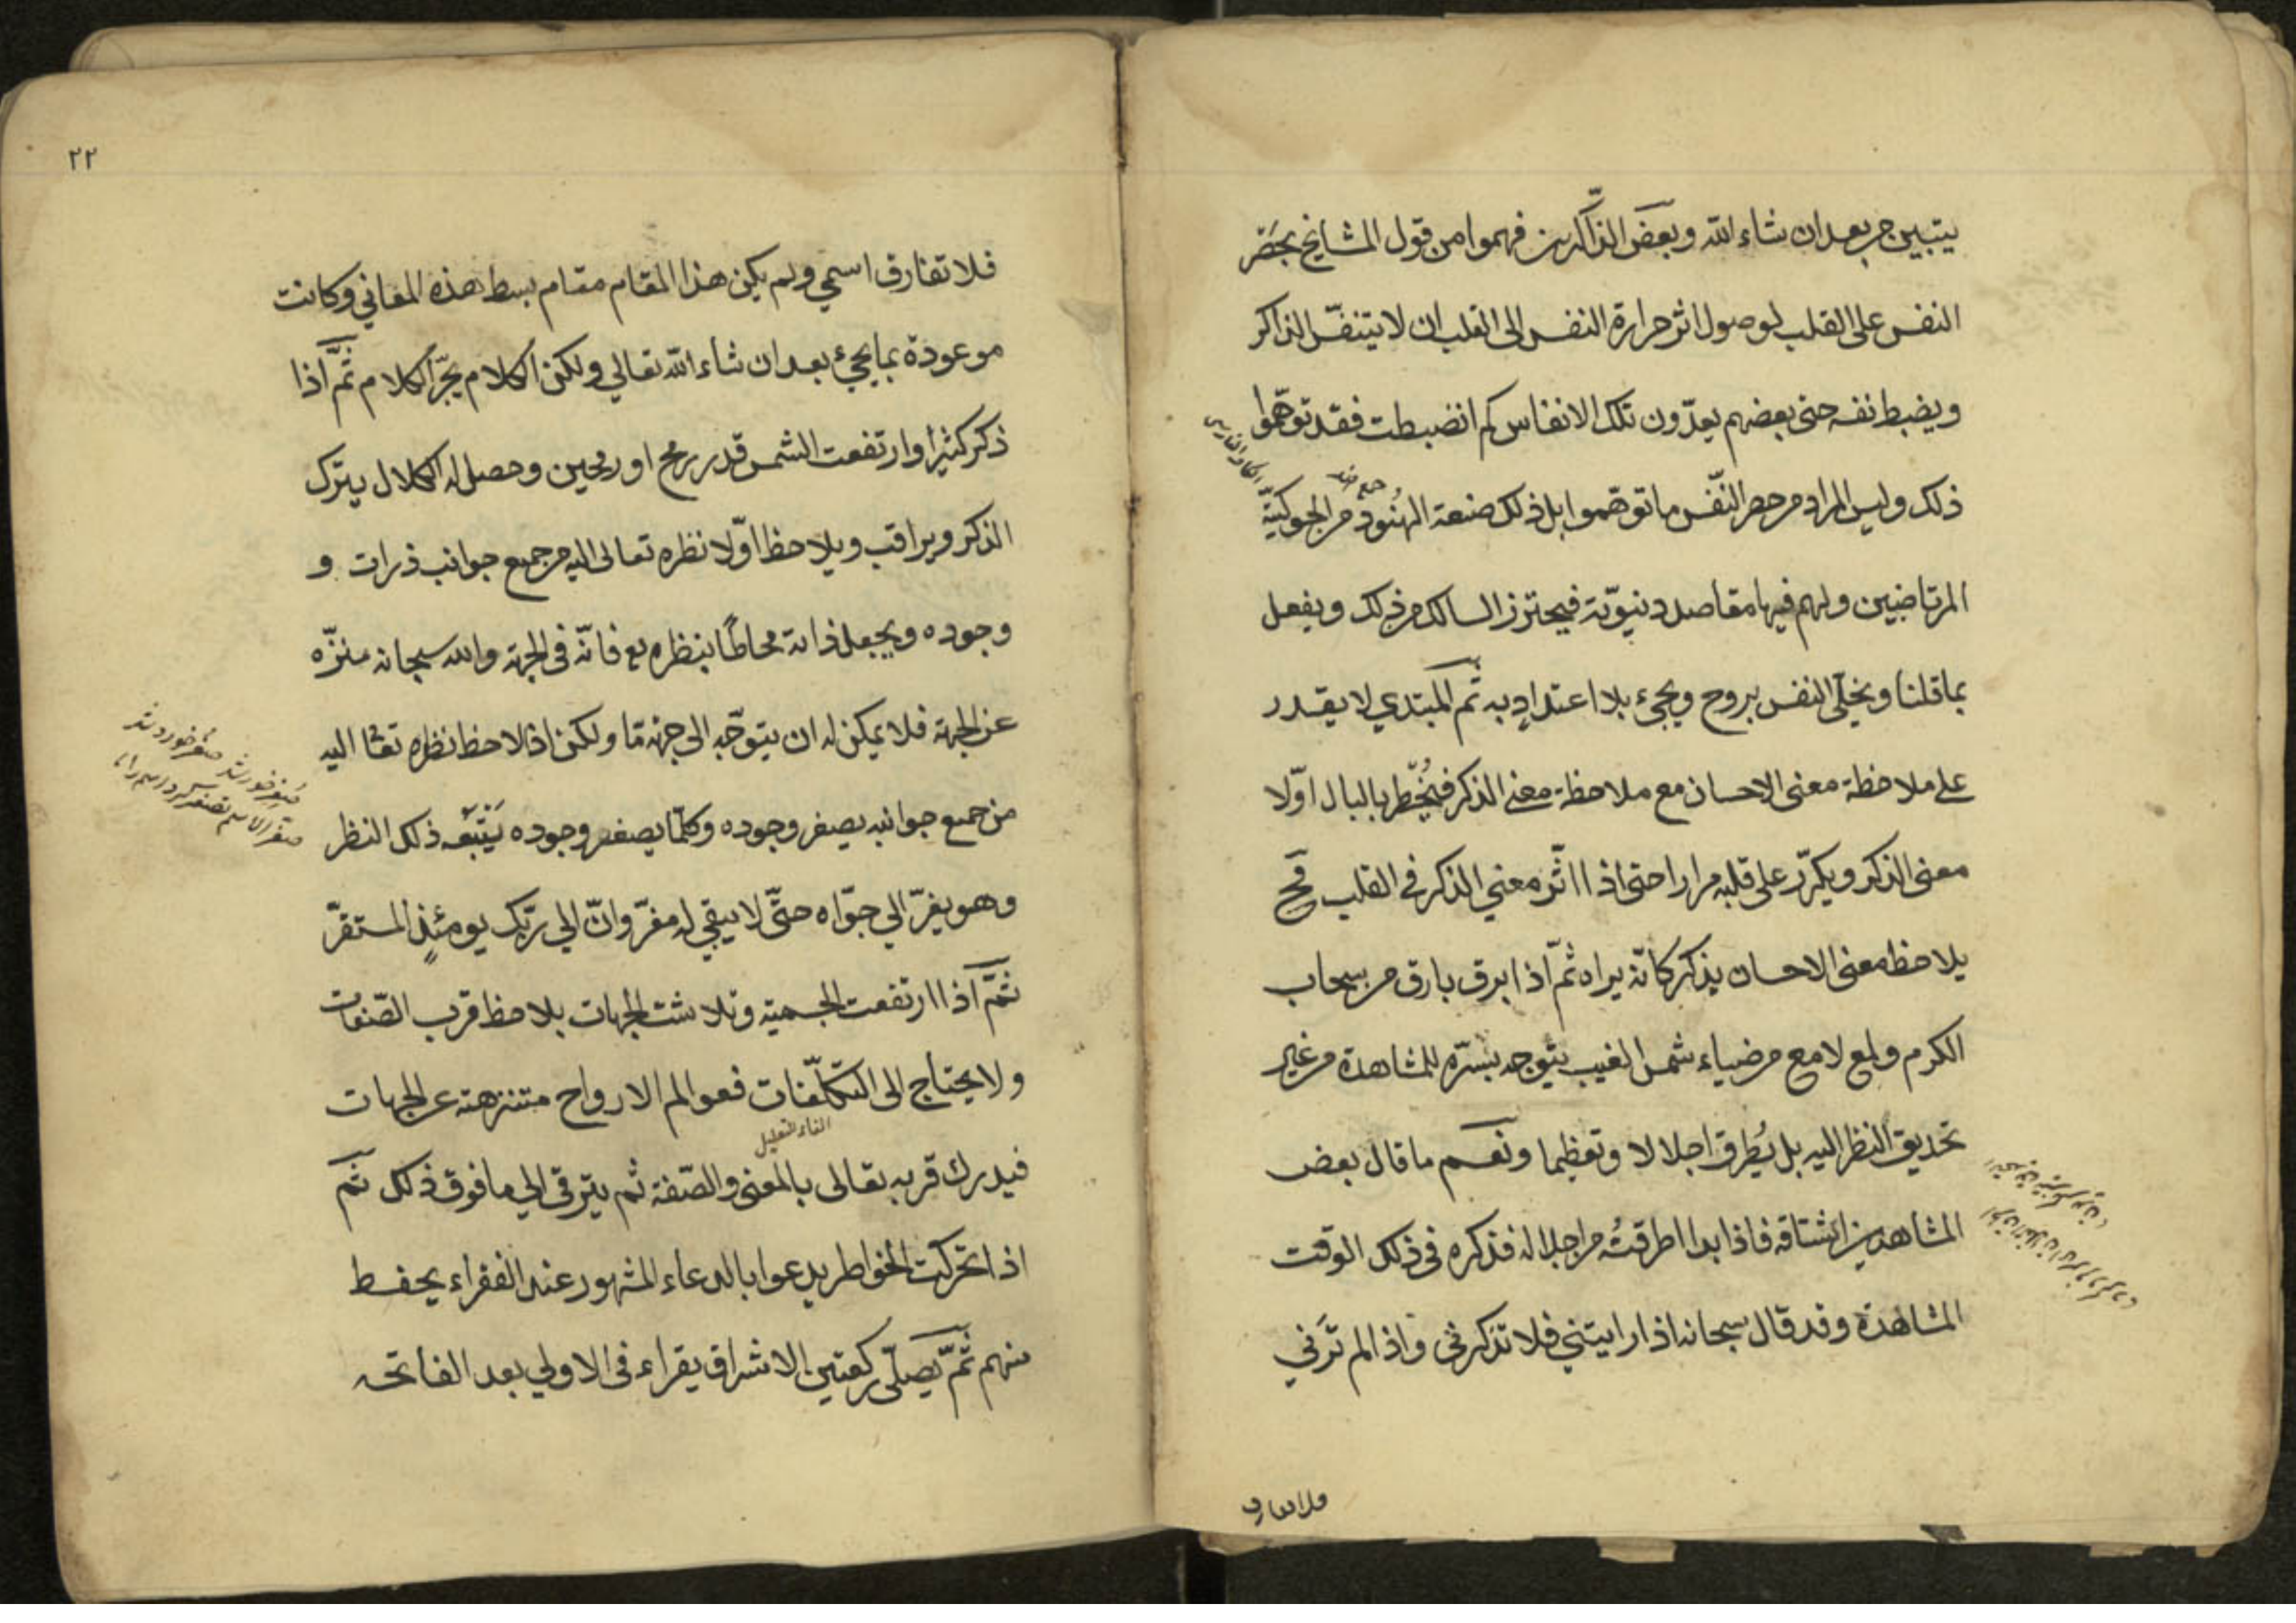 يتبين بعد ان شاء الله وبعض الذاكرين فهموا من قول المشايخ بحصر
النفس على القلب لوصول اثر حرارة النفس الى القلب ان لا يتنفّس الذاكر
ويضبط نفسه حتى بعضهم يعدّون تلك الانفاس كم انضبطت فقد توهّموا
ذلك وليس المراد من حصر النّفس ما توهّموا بل ذلك صنعة الهنُود من الجوكيّة
المرتاضين ولهم فيها مقاصد دنيويّة فيحترز السالك من ذلك ويفعل
بما قلنا ويخلّى النفس يروح ويجيء بلا اعتدادٍ به ثمّ المبتدي لا يقدر
على ملاحظة معنى الاحسان مع ملاحظة معنى الذكر فيُخطِر بالبال اوّلا
معنى الذكر ويكرّر على قلبه مرارا حتى اذا اثّر معني الذكر في القلب فح
يلاحظ معنى الاحسان يذكر كانّه يراه ثمّ اذا ابرق بارق من سحاب
الكرم ولمع لامع من ضياء شمس الغيب يتوجه بسرّه للمشاهدة من غير
تحديق النظر اليه بل يُطرِق اجلالا وتعظيما ونعم ما قال بعض
المشاهدين اشتاقه فاذا بدا اطرقتُ من اجلاله فذكره في ذلك الوقت
المشاهدة وقد قال سبحانه اذا رايتني فلا تذكرني واذا لم ترَني
فلا تفارق
٢٢
فلا تفارق اسمي ولم يكن هذا المقام مقام بسط هذه المعاني وكانت
موعودة بما يجئ بعد ان شاء الله تعالي ولكن الكلام يجرّ الكلام ثمّ اذا
ذكر كثيرا وارتفعت الشمس قدر رمح او رمحين وحصل له الكلال يترك
الذكر ويراقب ويلاحظ اوّلا نظره تعالى اليه من جميع جوانب ذرات و
وجوده ويجعل ذاته محاطًا بنظره تع فانّه في الجهة والله سبحانه منزّه
عن الجهة فلا يمكن له ان يتوجّه الى جهة مّا ولكن اذا لاحظ نظره تعا اليه
من جميع جوانبه يصغر وجوده وكلّما يصغر وجوده يَتْبَعُه ذلك النظر
وهو يفرّ الي جوّاه حتّى لا يبقي له مفرّ وانّ الي ربّك يومئذٍ المستقرّ
ثمّ اذا ارتفعت الجسمية وتلاشت الجهات يلاحظ قرب الصّفات
ولا يحتاج الى التكلّفات فعوالم الارواح متنزهته عن الجهات
الفاء للتعليل
فيدرك قربه تعالى بالمعنى والصّفة ثم يترقى الي ما فوق ذلك ثمّ
اذا تحركت الخواطر يدعوا بالدعاء المشهور عند الفقراء يحفظ
منهم ثمّ يصلّي ركعتين الاشراق يقراء فى الاولي بعد الفاتحه